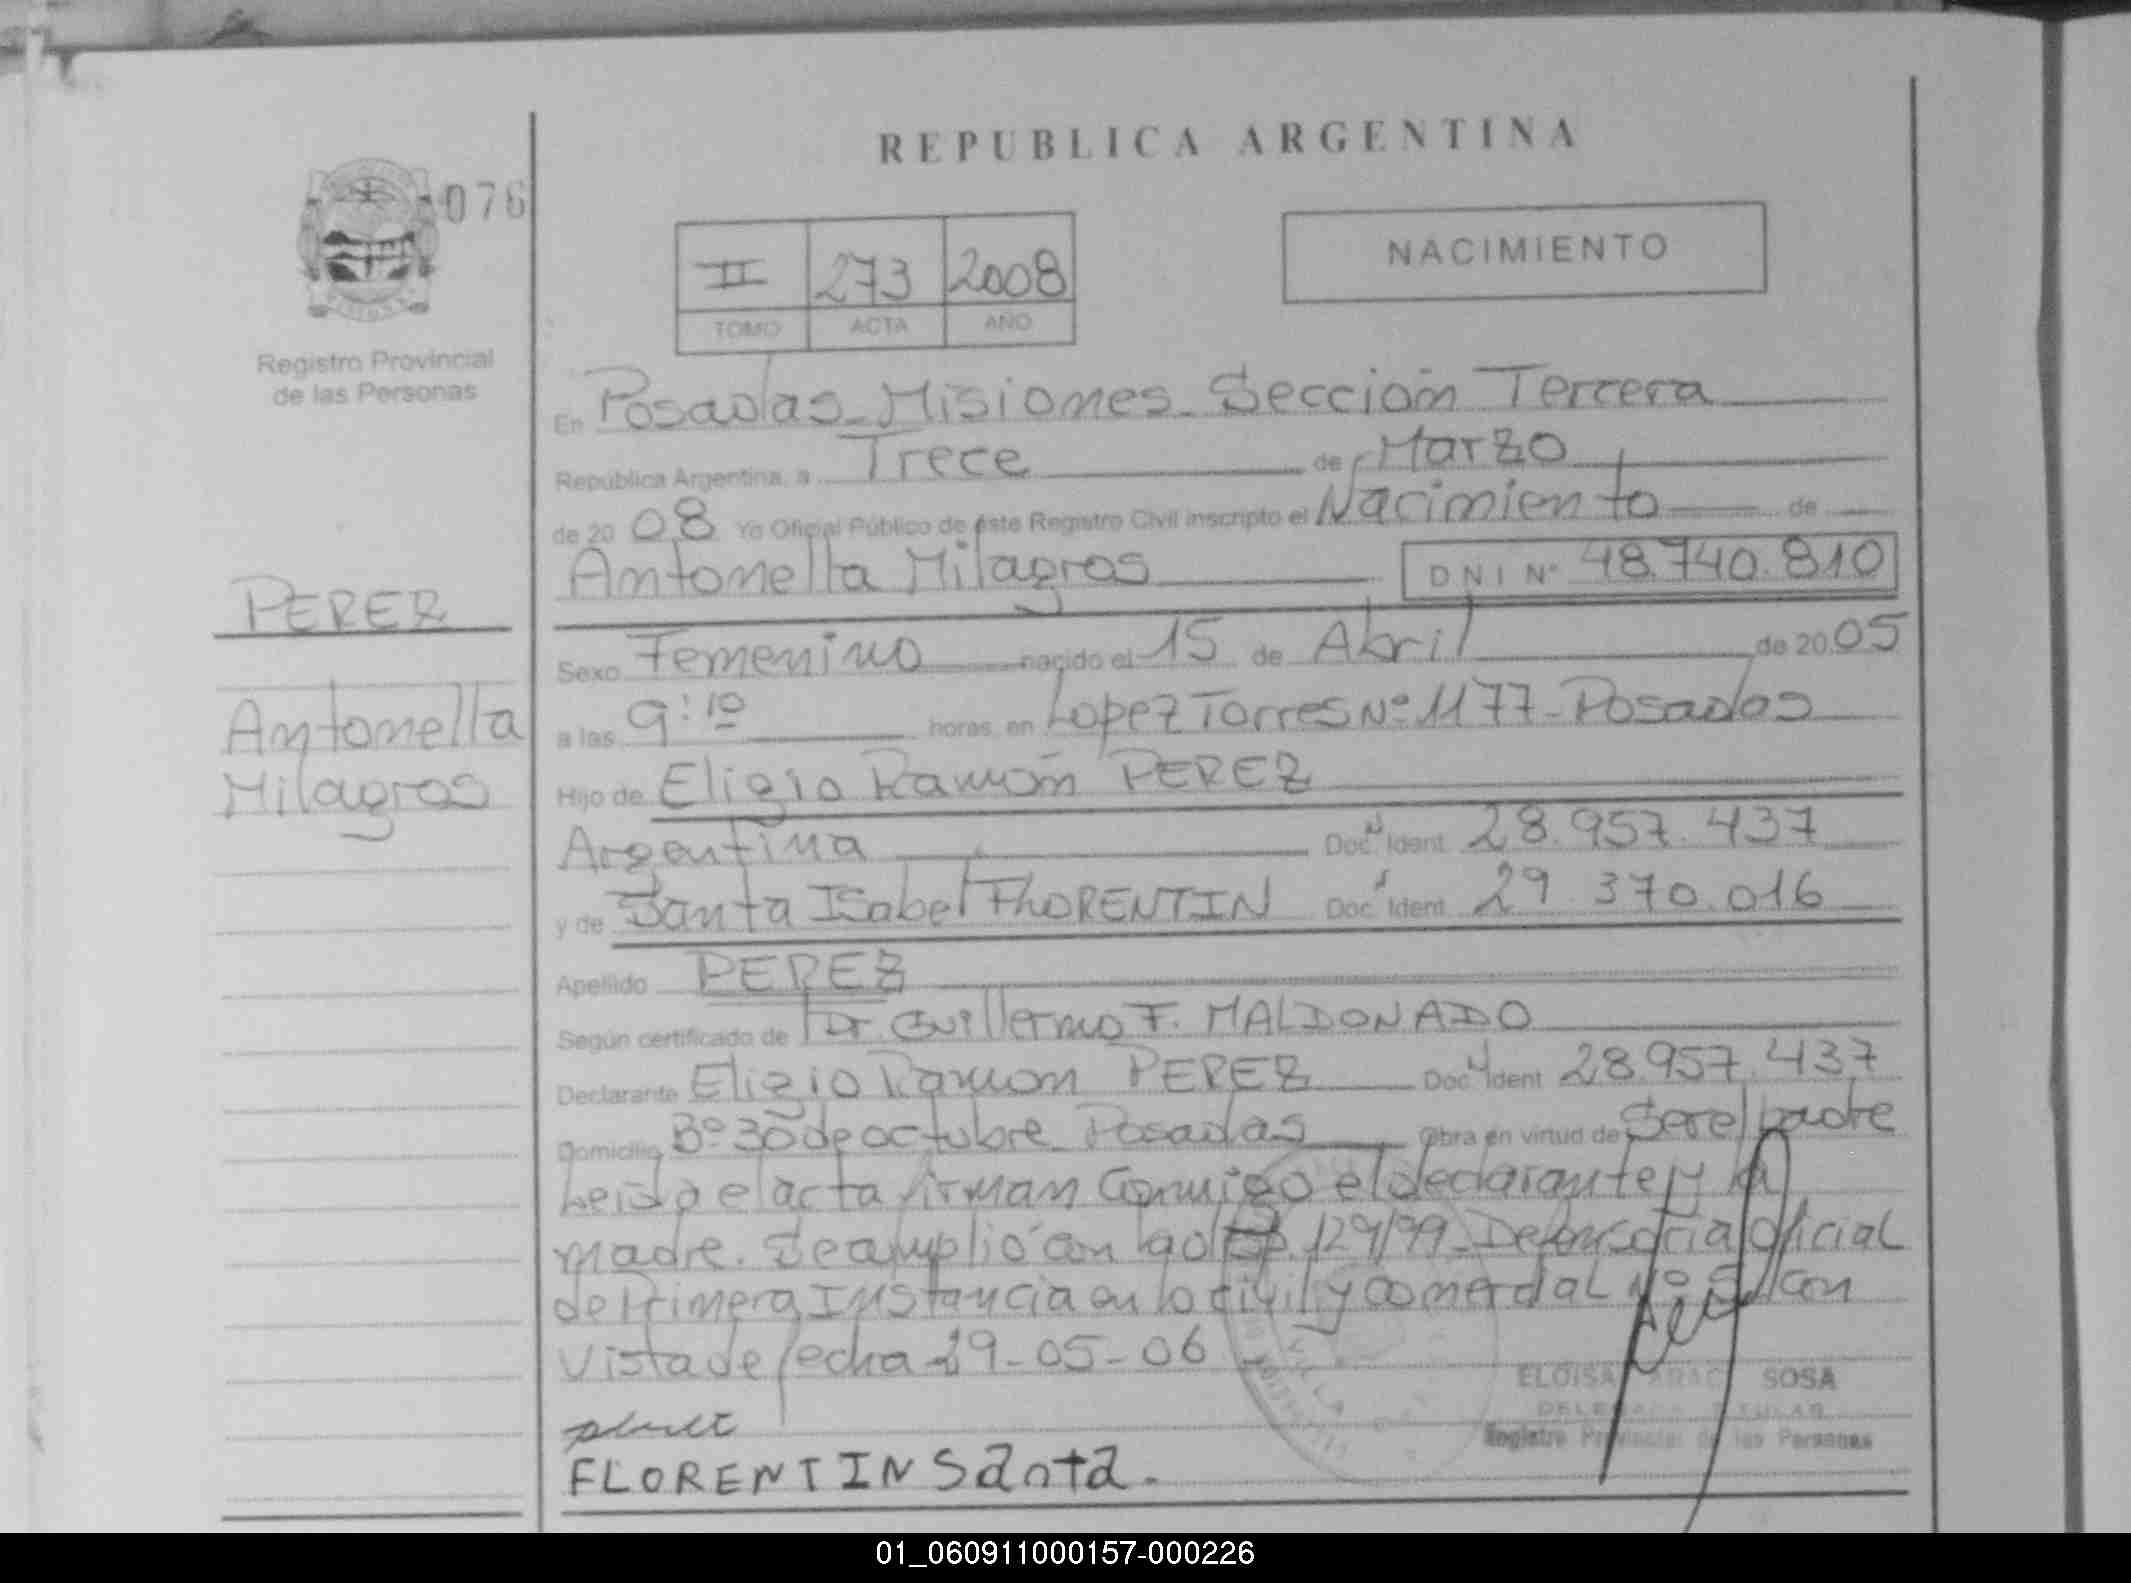 REPUBLICA ARGENTINA
076
II 273 2008
TOMO ACTA AÑO
NACIMIENTO
Registro Provincial
de las Personas
PEREZ
Antonella
Milagros
En Posadas - Misiones - Sección Tercera
República Argentina, a Trece de Marzo
de 2008 Yo Oficial Público de éste Registro Civil inscripto el Nacimiento de
Antonella Milagros DNI Nº 48.740.810
Sexo Femenino nacido el 15 de Abril de 2005
a las 9:10 horas en Lopez Torres Nº 1177 - Posadas
Hijo de Eligio Ramón PEREZ
Argentina Doc. N Ident. 28.957.437
y de Santa Isabel FLORENTIN Doc. Ident. 29.370.016
Apellido PEREZ
Según certificado de Dr. Guillermo F. MALDONADO
Declarante Eligio Ramon PEREZ Doc. N Ident 28.957.437
Domicilio Bº 30 de octubre Posadas Obra en virtud de Ser el padre
Leida el acta firman Conmigo el declarante y la
madre. Se amplió con 129/99 - Defensoria oficial
de Primera Instancia en lo civil y comercial Nº con
vista de fecha 29-05-06
ELOISA SOSA
Registro Provincial de las Personas
FLORENTIN Santa.
01_060911000157-000226